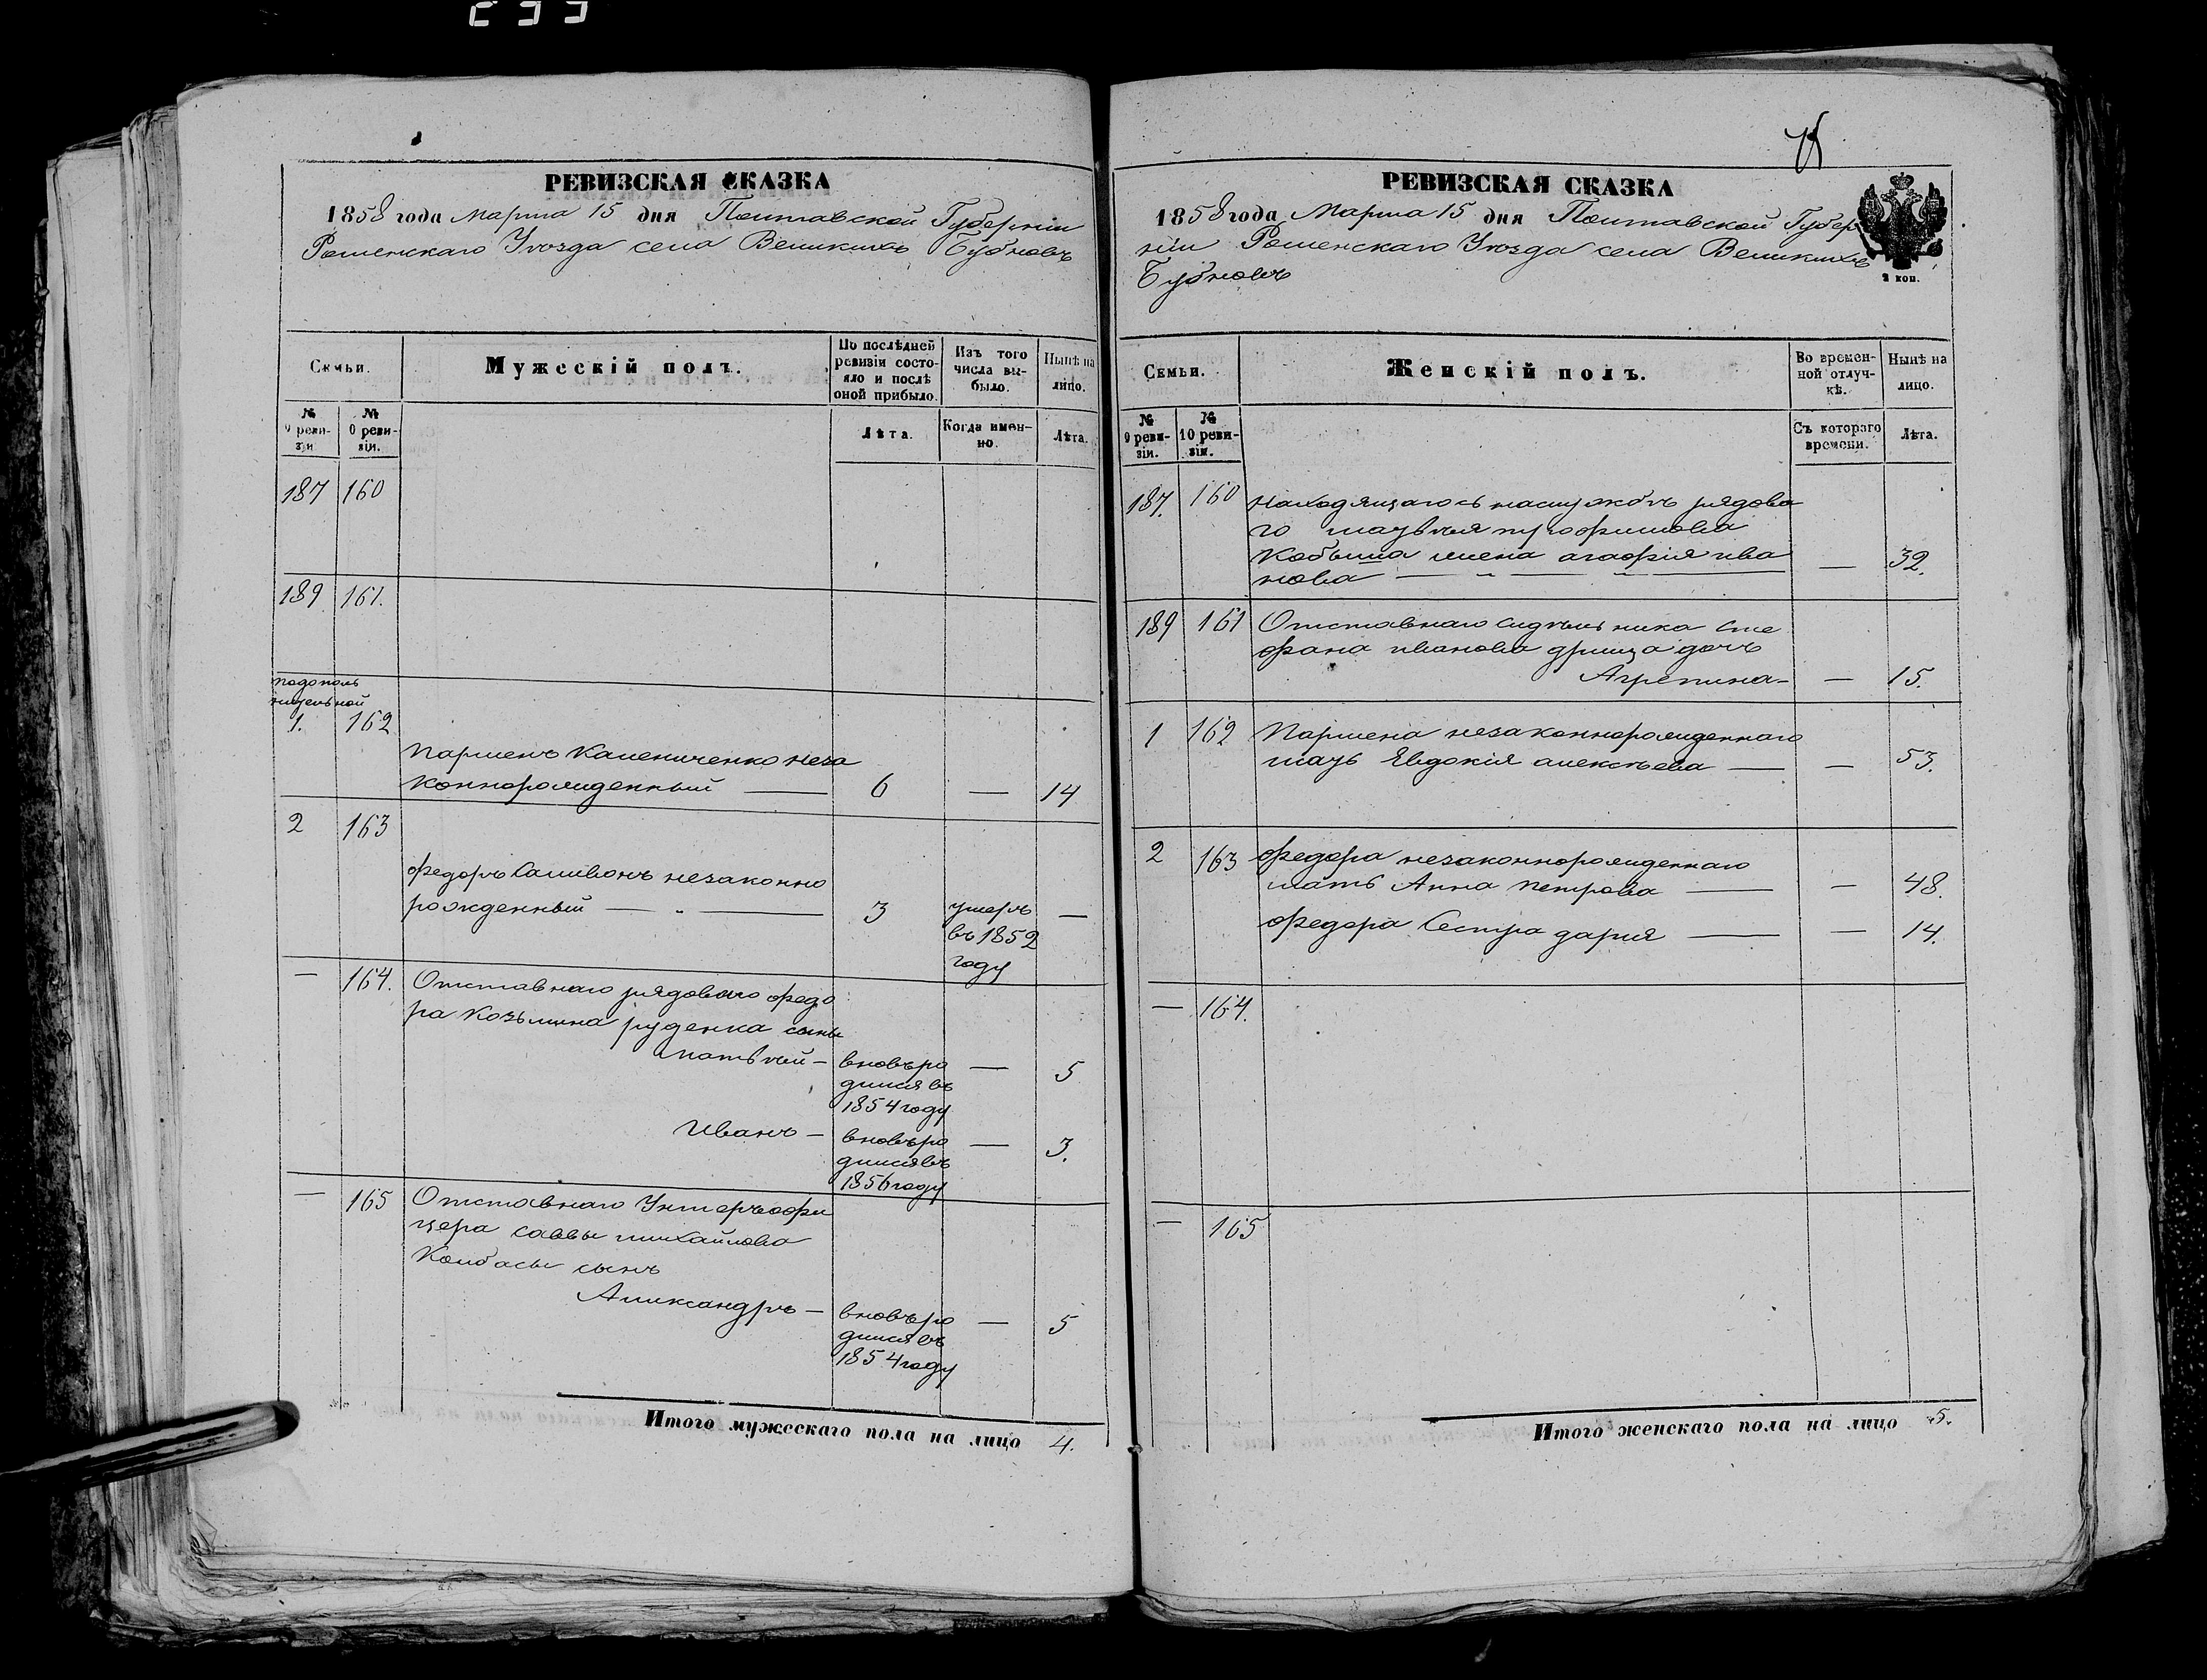 РЕВИЗСКАЯ СКАЗКА
1858 года Марта 15 дня Полтавской Губерніи
Роменскаго Уѣзда села Великихъ Бубновъ
Семьи.
Мужескій полъ.
По послѣдней ревизіи состояло и послѣ оной прибыло.
Изъ того числа выбыло.
Нынѣ на лицо.
№ 9 ревизіи.
№ 10 ревизіи.
Лѣта.
Когда именно.
Лѣта.
187 160
189 161.
подополнительной
1. 162
Парменъ Калениченко неза
коннорожденный — 6 — 14
2 163
Федоръ Саливонъ незаконно
рожденный — 3 умеръ —
въ 1852
году
— 164. Отставнаго рядоваго Федо
ра Козьмина руденка сыны
Матвѣй — вновь ро — 5
дился въ
1854 году
Иванъ — вновь ро — 3.
дился въ
1856 году
— 165 Отставнаго Унтеръ офи
цера саввы михайлова
Колбасы сынъ
Александръ — вновь ро — 5
дился въ
1854 году
Итого мужескаго пола на лицо 4.
РЕВИЗСКАЯ СКАЗКА
1858 года Марта 15 дня Полтавской Губер
ніи Роменскаго Уѣзда села Великихъ
Бубновъ
2 коп.
Семьи.
Женскій полъ.
Во временной отлучкѣ.
Нынѣ на лицо.
№ 9 ревизіи.
№ 10 ревизіи.
Съ котораго времени.
Лѣта.
187. 160 находящагось наслужбѣ рядова
го матвѣя трофимова
Кобыша жена агафія ива
нова — 32.
189 161 Отставнаго сидѣльника сте
фана иванова дрища дочь
Агрепина — — 15.
1 162 Пармена незаконнорожденнаго
мать Явдокія алексѣева — — 53.
2 163 Федора незаконнорожденнаго
мать Анна петрова — — 48.
Федора Сестра дария — — 14.
— 164.
— 165
Итого женскаго пола на лицо 5.